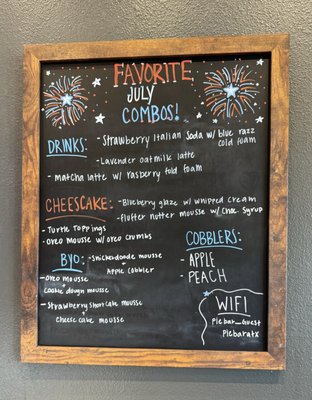 FAVORITE
JULY
COMBOS!
DRINKS: - Strawberry Italian Soda w/ blue razz
cold foam
- Lavender oatmilk latte
- matcha latte w/ raspberry fold foam
CHEESCAKE: - Blueberry glaze w/ whipped cream
- fluffer nutter mousse w/ choc syrup
- Turtle toppings
- oreo mousse w/ oreo crumbs
BYO: - Snickerdoodle mousse
+
Apple cobbler
- oreo mousse
+
cookie dough mousse
- Strawberry shortcake mousse
+
cheesecake mousse
COBBLERS:
- APPLE
- PEACH
WIFI
Piebar_Guest
Piebaratx